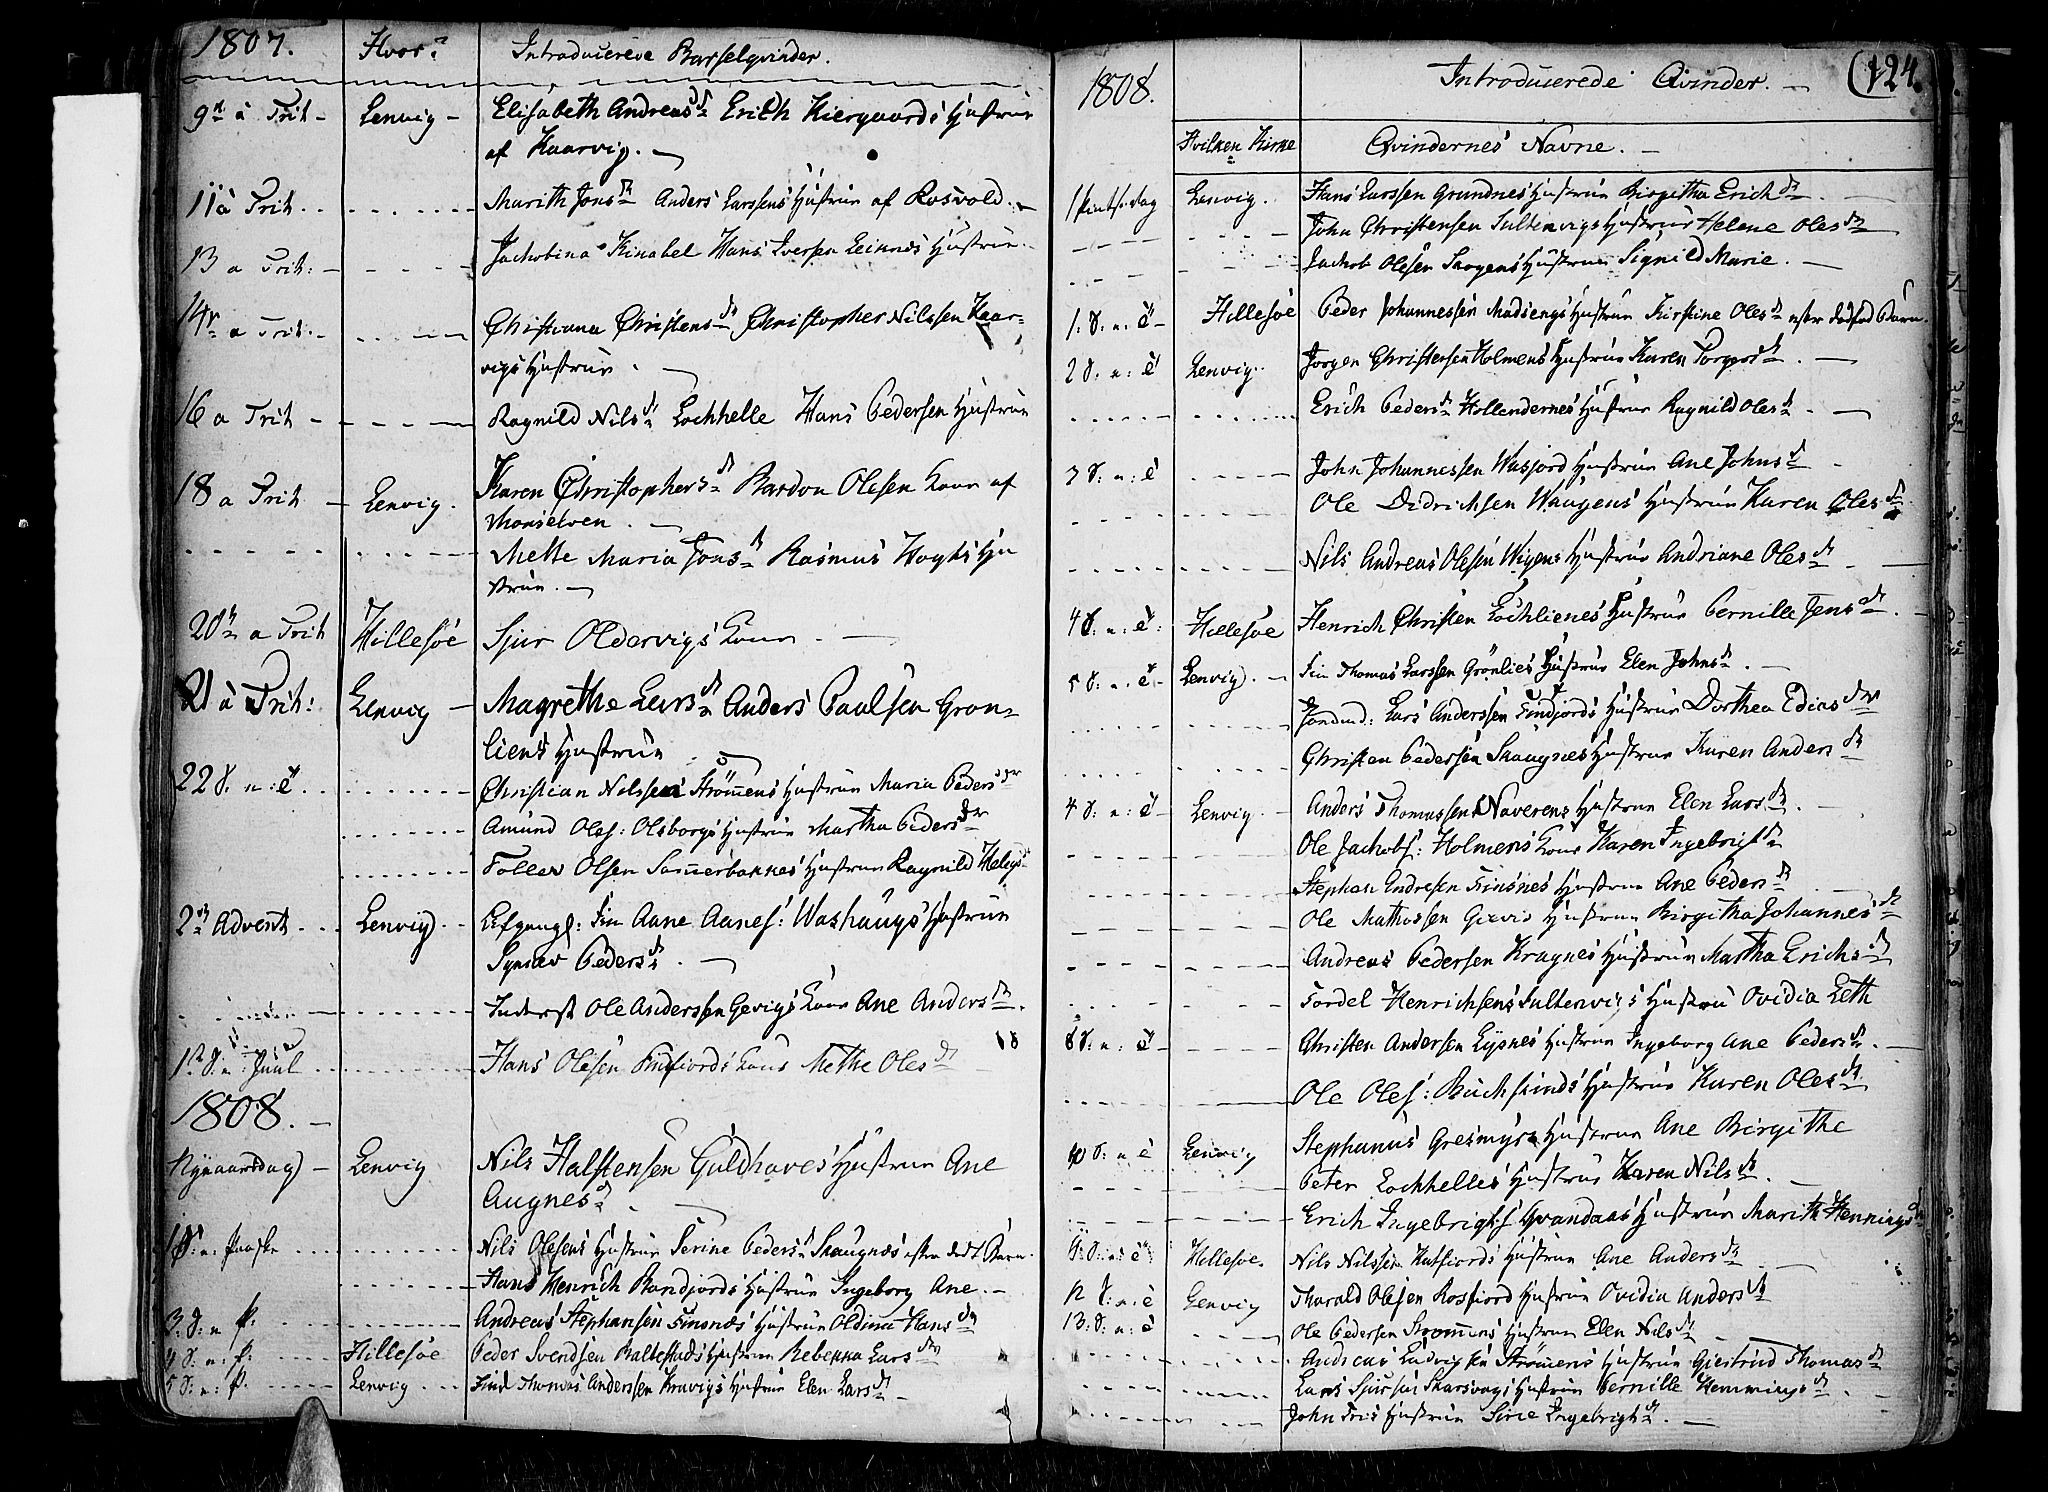 1807. Hvor? Introducerede Barselqvinder.
9de à Trit - Lenvig - Elisabeth Andreasdr Erich Kiergaards Hustrue
af Kaarvig. -
11 à Trit. Marith Jonsdr Anders Larssens Hustrue af Rosvold. -
13 a Trit: - Jachobina Hans Iversen Leiknes Hustrue.
14 a Trit. Christiana Christensdr Christopher Nilssen Kaar-
vigs Hustrue.
16 a Trit - Ragnild Nilsdr Lochhelle Hans Pedersen Hustrue
18 a Trit - Lenvig. Karen Christophersdr Bardon Olesen Kone af
Monselven. -
Mette Maria Jonsdr Rasmus Hogts Hu
strue. -
20de a Trit Hillesöe Sjur Oldervigs Kone. -
21 à Trit: Lenvig - Magrethe Larsdr Anders Paulsen Gron-
liens Hustrue
22 S. n: e. Christian Nilssen Strömmens Hustrue Maria Pedersdr
Amund Oles: Olsborgs Hustrue Martha Pedersdr
Toller Olsen Sommerbakkes Hustrue Ragnild
2den Advent Lenvig Fin Aane Aanes: Hustrue
Pedersdr. -
Inderst Ole Anderssen Gevigs Kone Ane Andersdr.
1ste S: n: Juul Hans Olesen Finfiords Kone Methe Olesdr
1808. -
Nyaarsdag - Lenvig Nils Halstensen Guldhaves Hustrue Ane
Augnesdr. -
1 S: n: Paaske Nils Olesens Hustrue Serine Pedersdr Skaugnæs efter dödt Barn.
Hans Henrich Hustrue Ingeborg Ane. -
3: S: n P: Andreas Stephansen Finsnæs Hustrue Oldina Hansdr
4 S: n: P: Hillesöe Peder Svendsen Baltestads Hustrue Rebekka Larsdr
5 S: n: P. Lenvig Find Thomas Anderssen Hustrue Elen Larsdr -
1808. Introducerede Qvinder. - (124.
Hvilken Kirke Qvindernes Navne. -
1 Pintsedag Lenvig. Hans Larssen Grundnes Hustrue Birgitha Erichdr.
John Christensen Sultenvigs Hustrue Helene Olesdr
Jachob Olesen Skogens Hustrue Signild Marie. -
1: S: n: e - Hillesöe Peder Johannessen Hustrue Kirstine Olesdr efter dödfød Barn.
2 S: n: e Lenvig. Jorgen Christensen Holmens Hustrue Karen -
Erich Pedersen Hollendernes Hustrue Ragnild Olesdr. -
3 S: n: e John Johannessen Hustrue Ane Johnsdr
Ole Didrichsen Waagens Hustrue Karen Olesdr
Nils Andreas Olesen Wigens Hustrue Andriane Olesdr. -
4 S: n: e: Hillesöe Henrich Christen Lochlienes Hustrue Pernille Jensdr.
5 S: n: e - Lenvig. - Fin Thomas Larssen Grönlies Hustrue Elen Johnsdr. -
Lars Anderssen Finfjords Hustrue Dorthea
Christen Pedersen Skaugnæs Hustrue Karen Andersdr
4 S: n: e - Lenvig. Anders Thomassens Naverens Hustrue Elen Larsdr.
Ole Jachobs: Holmens Kone Karen Ingebrigtdr
Stephan Andresen Finsnes Hustrue Ane Pedersdr
Ole Mathæssen Hustrue Birgitha Johannesdr
Andreas Pedersen Kragnes Hustrue Martha Erichsdr
Tordel Henrichsens Sultenvigs Hustru Ovidia Leth
8 S: n: e - Christen Andersen Lysnes Hustrue Ingeborg Ane Pedersdr. -
Ole Oles: Buchskinds Hustrue Karen Olesdr
10 S: n e Lenvig Stephanus Gresmyrs Hustrue Ane Birgithe
Peter Lochhelles Hustrue Karen Nilsdr. -
Erich Ingebrigts Hustrue Marith Henningsdr
S: n: e Hillesöe. Nils Nilssen Hustrue Ane Andersdr. -
12 S: n: e Lenvig Tharald Olesen Rosfiord Hustrue Ovidia Andersdr
13: S: n: e Ole Pedersen Strommens Hustrue Elen Nilsdr
Andreas Ludvigsen Strömmens Hustrue Giertrud Thomasdr
Lars Sjursen Skarsvogs Hustrue Pernille Hemmingsdr.
John Fris Hustrue Sirie Ingebrigtdr. -